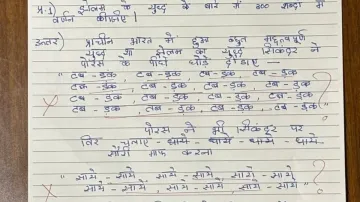 प्र.1) झेलम के युद्ध के बारे में 800 शब्दों में
वर्णन कीजिए।
उत्तर) प्राचीन भारत में हुआ बहुत महत्वपूर्ण
युद्ध था झेलम का युद्ध सिकंदर ने
पोरस के पीछे घोड़े दौड़ाए -
" टब - डक टब - डक, टब - डक, टब - डक
टब - डक, टब - डक, टब - डक, टब - डक,
टब - डक, टब - डक, टब - डक, टब - डक
टब - डक, टब - डक, टब - डक, टब - डक "
पोरस ने भी सिकंदर पर
तिर चलाए - साये - साये - साये - साये
सॉरी माफ करना
" साये - साये, साये - साये, साये - साये
साये - साये, साये - साये, साये - साये "